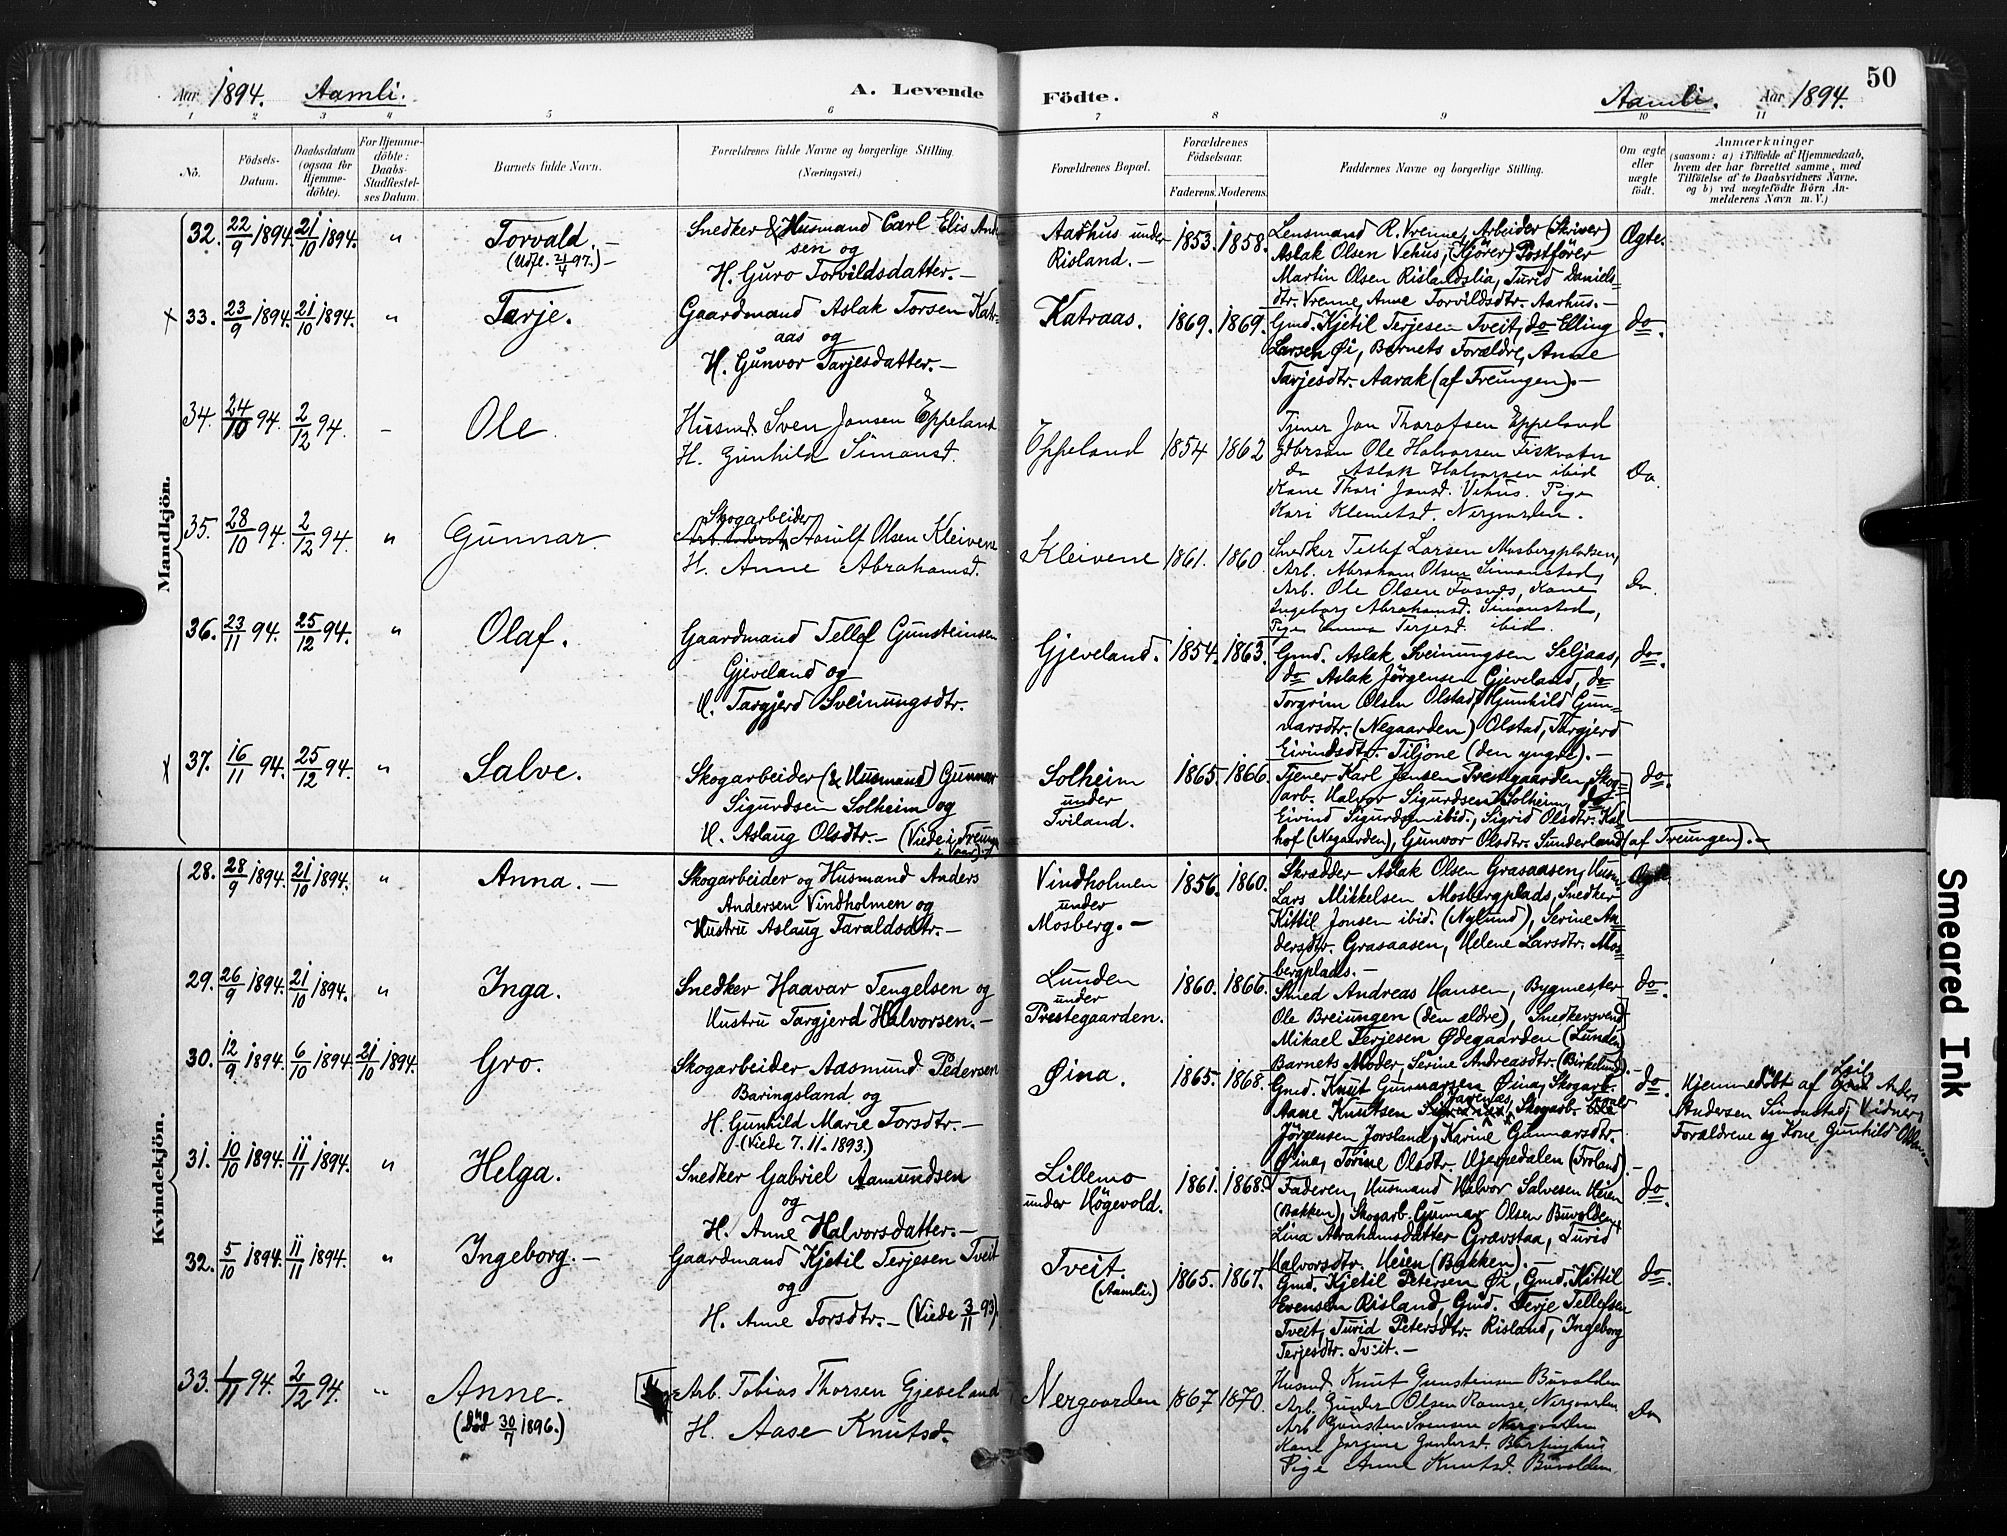 50
Aar 1894. Aamli. A. Levende Födte. Aamli. Aar 1894.
1 2 3 4 5 6 7 8 9 10 11
No.
Födsels-
Datum.
Daabsdatum
(ogsaa for
Hjemme-
döbte).
For Hjemme-
döbte:
Daabs-
Stadfæstel-
ses Datum.
Barnets fulde Navn.
Forældrenes fulde Navne og borgerlige Stilling.
(Næringsvei.)
Forældrenes Bopæl.
Forældrenes
Födselsaar.
Faderens. Moderens.
Faddernes Navne og borgerlige Stilling.
Om ægte
eller
uægte
født.
Anmærkninger
(saasom: a) i Tilfælde af Hjemmedaab,
hvem der har forrettet samme, med
Tilföielse af to Daabsvidners Navne,
og b) ved uægtefödte Börn An-
melderens Navn m. V.)
Mandkjön.
32. 22/9 1894. 21/10 1894. "
Torvald. –
(Udfl. 21/4 97.) –
Snedker & Husmand Carl Elis And
sen og
H. Guro Torvildsdatter. –
Aarhus under
Risland. –
1853. 1858.
Lensmand R. Vrenne, Arbeider (Skriver)
Aslak Olsen Vehus, (Kjörer) Postförer
Martin Olsen Rislandslia, Turid Daniels-
dtr. Vrenne, Anne Torvildsdtr. Aarhus. –
Ægte.
x 33. 23/9 1894. 21/10 1894. "
Tarje.
Gaardmand Aslak Torsen Katr-
aas og
H. Gunvor Tarjesdatter. –
Katraas.
1869. 1869.
Gmd. Kjetil Terjesen Tveit, do Elling
Larsen Øi, Barnets Forældre, Anne
Tarjesdtr. Aarak (af Treungen). –
do.
34. 24/10 94. 2/12 94. –
Ole.
Husmd. Sven Jonsen Eppeland
H. Gunhild Simonsd.
Eppeland
1854 1862
Tjener Jon Thorofsen Eppeland
Ole Halvorsen Fiskvatn
do Aslak Halvorsen ibid
Kone Thori Jonsd. Vehus. Pige
Kari Klemetsd. Nergaarden.
Do.
35. 28/10 94. 2/12 94. "
Gunnar.
Skogarbeider
Aasulf Olsen Kleivene
H. Anne Abrahamsd.
Kleivene
1861. 1860.
Snedker Tellef Larsen Mosbergpladsen,
Arb. Abraham Olsen Simonstad,
Arb. Ole Olsen Fosnes, Kone
Ingeborg Abrahamsd. Simonstad,
Pige Emma Terjesd. ibid.
Do.
36. 23/11 94. 25/12 94. "
Olaf.
Gaardmand Tellef Gunsteinsen
Gjeveland og
H. Targjerd Sveinungsdtr.
Gjeveland.
1854. 1863.
Gmd. Aslak Sveinungsen Seljaas,
do Aslak Jörgensen Gjeveland, do
Torgrim Olsen Olstad, Gunhild Gun-
narsdtr. (Negaarden) Olstad, Targjerd
Eivindsdtr. Tiljone (den yngre). –
do.
x 37. 16/11 94. 25/12 94. "
Salve.
Skogarbeider (& Husmand) Gunnar
Sigurdsen Solheim og
H. Aslaug Olsdtr. – (Viede i Treungen
i Vaar).
Solheim
under
Tviland.
1865. 1866.
Tjener Karl Jensen Prestegaarden, Skog-
arb. Halvor Sigurdsen Solheim, do
Eivind Sigurdsen ibid., Sigrid Olsdtr. Kal
hof (Negaarden), Gunvor Olsdtr. Sunderland (af Treungen). –
do.
Kvindekjön.
28. 28/9 1894. 21/10 1894. "
Anna. –
Skogarbeider og Husmand Anders
Andersen Vindholmen og
Hustru Aslaug Faraldsdtr. –
Vindholmen
under
Mosberg. –
1856. 1860.
Skrædder Aslak Olsen Grasaasen, Husm.
Lars Mikkelsen Mosbergplads, Snedker
Kittil Jonsen ibid. (Nylund), Serine An-
dersdtr. Grasaasen, Helene Larsdtr. Mos-
bergplads. –
Ægte.
29. 26/9 1894. 21/10 1894. "
Inga.
Snedker Haavar Tengelsen og
Hustru Targjerd Halvorsen. –
Lunden
under
Prestegaarden.
1860. 1866.
Smed Andreas Hansen, Bygmester
Ole Breiungen (den ældre), Snedkersvend
Mikael Terjesen Ødegaarden (Lunden)
Barnets Moder, Serine Andreasdtr. (Birkelund). –
do.
30. 12/9 1894. 6/10 1894. 21/10 1894.
Gro.
Skogarbeider Aasmund Pedersen
Baringsland og
H. Gunhild Marie Torsdtr. –
(Viede 7.11.1893.)
Øina.
1865. 1868.
Gmd. Knut Gunnarsen Øina, Skogarb.
Aane Knutsen Skogarb. Ole
Jörgensen Jorsland, Karine Gunnarsdtr.
Øina, Torine Olsdtr. Hjerpedalen (Froland). –
do.
Hjemmedöbt af Anders
Andersen Simonstad, Vidner:
Forældrene og Kone Gunhild
31. 10/10 1894. 11/11 1894. "
Helga.
Snedker Gabriel Aamundsen
og
H. Anne Halvorsdatter. –
Lillemo
under Högevold.
1861. 1868.
Faderen, Husmand Halvor Salvesen Heien
(Bakken), Skogarb. Gunnar Olsen Buvolden,
Lina Abrahamsdatter Grævstaa, Turid
Halvorsdtr. Heien (Bakken). –
do.
32. 5/10 1894. 11/11 1894. "
Ingeborg. –
Gaardmand Kjetil Terjesen Tveit
og
H. Anne Torsdtr. – (Viede 3/11 93).
Tveit.
(Aamli.)
1865. 1867.
Gmd. Kjetil Petersen Øi, Gmd. Kittil
Evensen Risland, Gmd. Terje Tellefsen
Tveit, Turid Petersdtr. Risland, Ingeborg
Terjesdtr. Tveit. –
do.
33. 1/11 94. 2/12 94. "
Anne.
(död 30/7 1896.)
Arb. Tobias Thorsen Gjeveland
H. Aase Knutsd.
Nergaarden
1867 1870.
Husmd Knut Gunsteinsen Buvolden
Arb. Gunder Olsen Ramse, Nergaarden
Arb Gunsten Svensen Nergaarden
Kone Jorgine Gundersd.
Pige Anne Knutsd. Buvolden.
Do
Smeared Ink